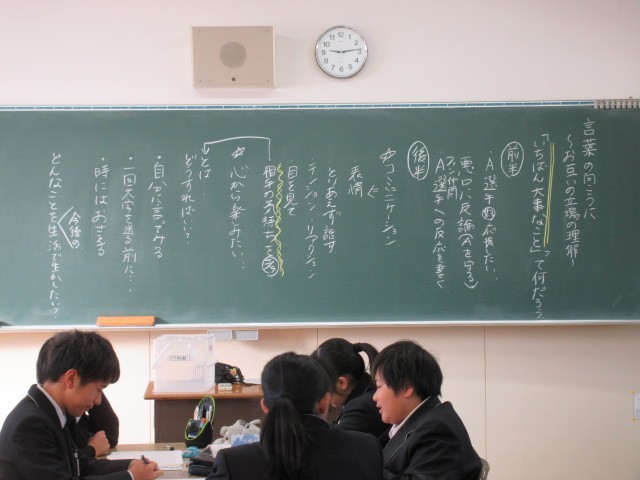 言葉の向こうに
〜お互いの立場の理解〜
「いちばん大事なこと」って何だろう
前半
・A選手 応援したい。
悪口、反論(Aを守る)
ファン仲間
後半
・A選手への反応を書く
☆コミュニケーション
表情
・とりあえず話す
・テンション・リアクション
目を見て
相手の気持ちを考
☆心から楽しみたい…
とは…
どうすればいい?
・自分に言ってみる
・一回文字を送る前に…
・時にはおさまる
今後の
どんなことを生活で生かしたい?
12
1
2
3
4
5
6
7
8
9
10
11